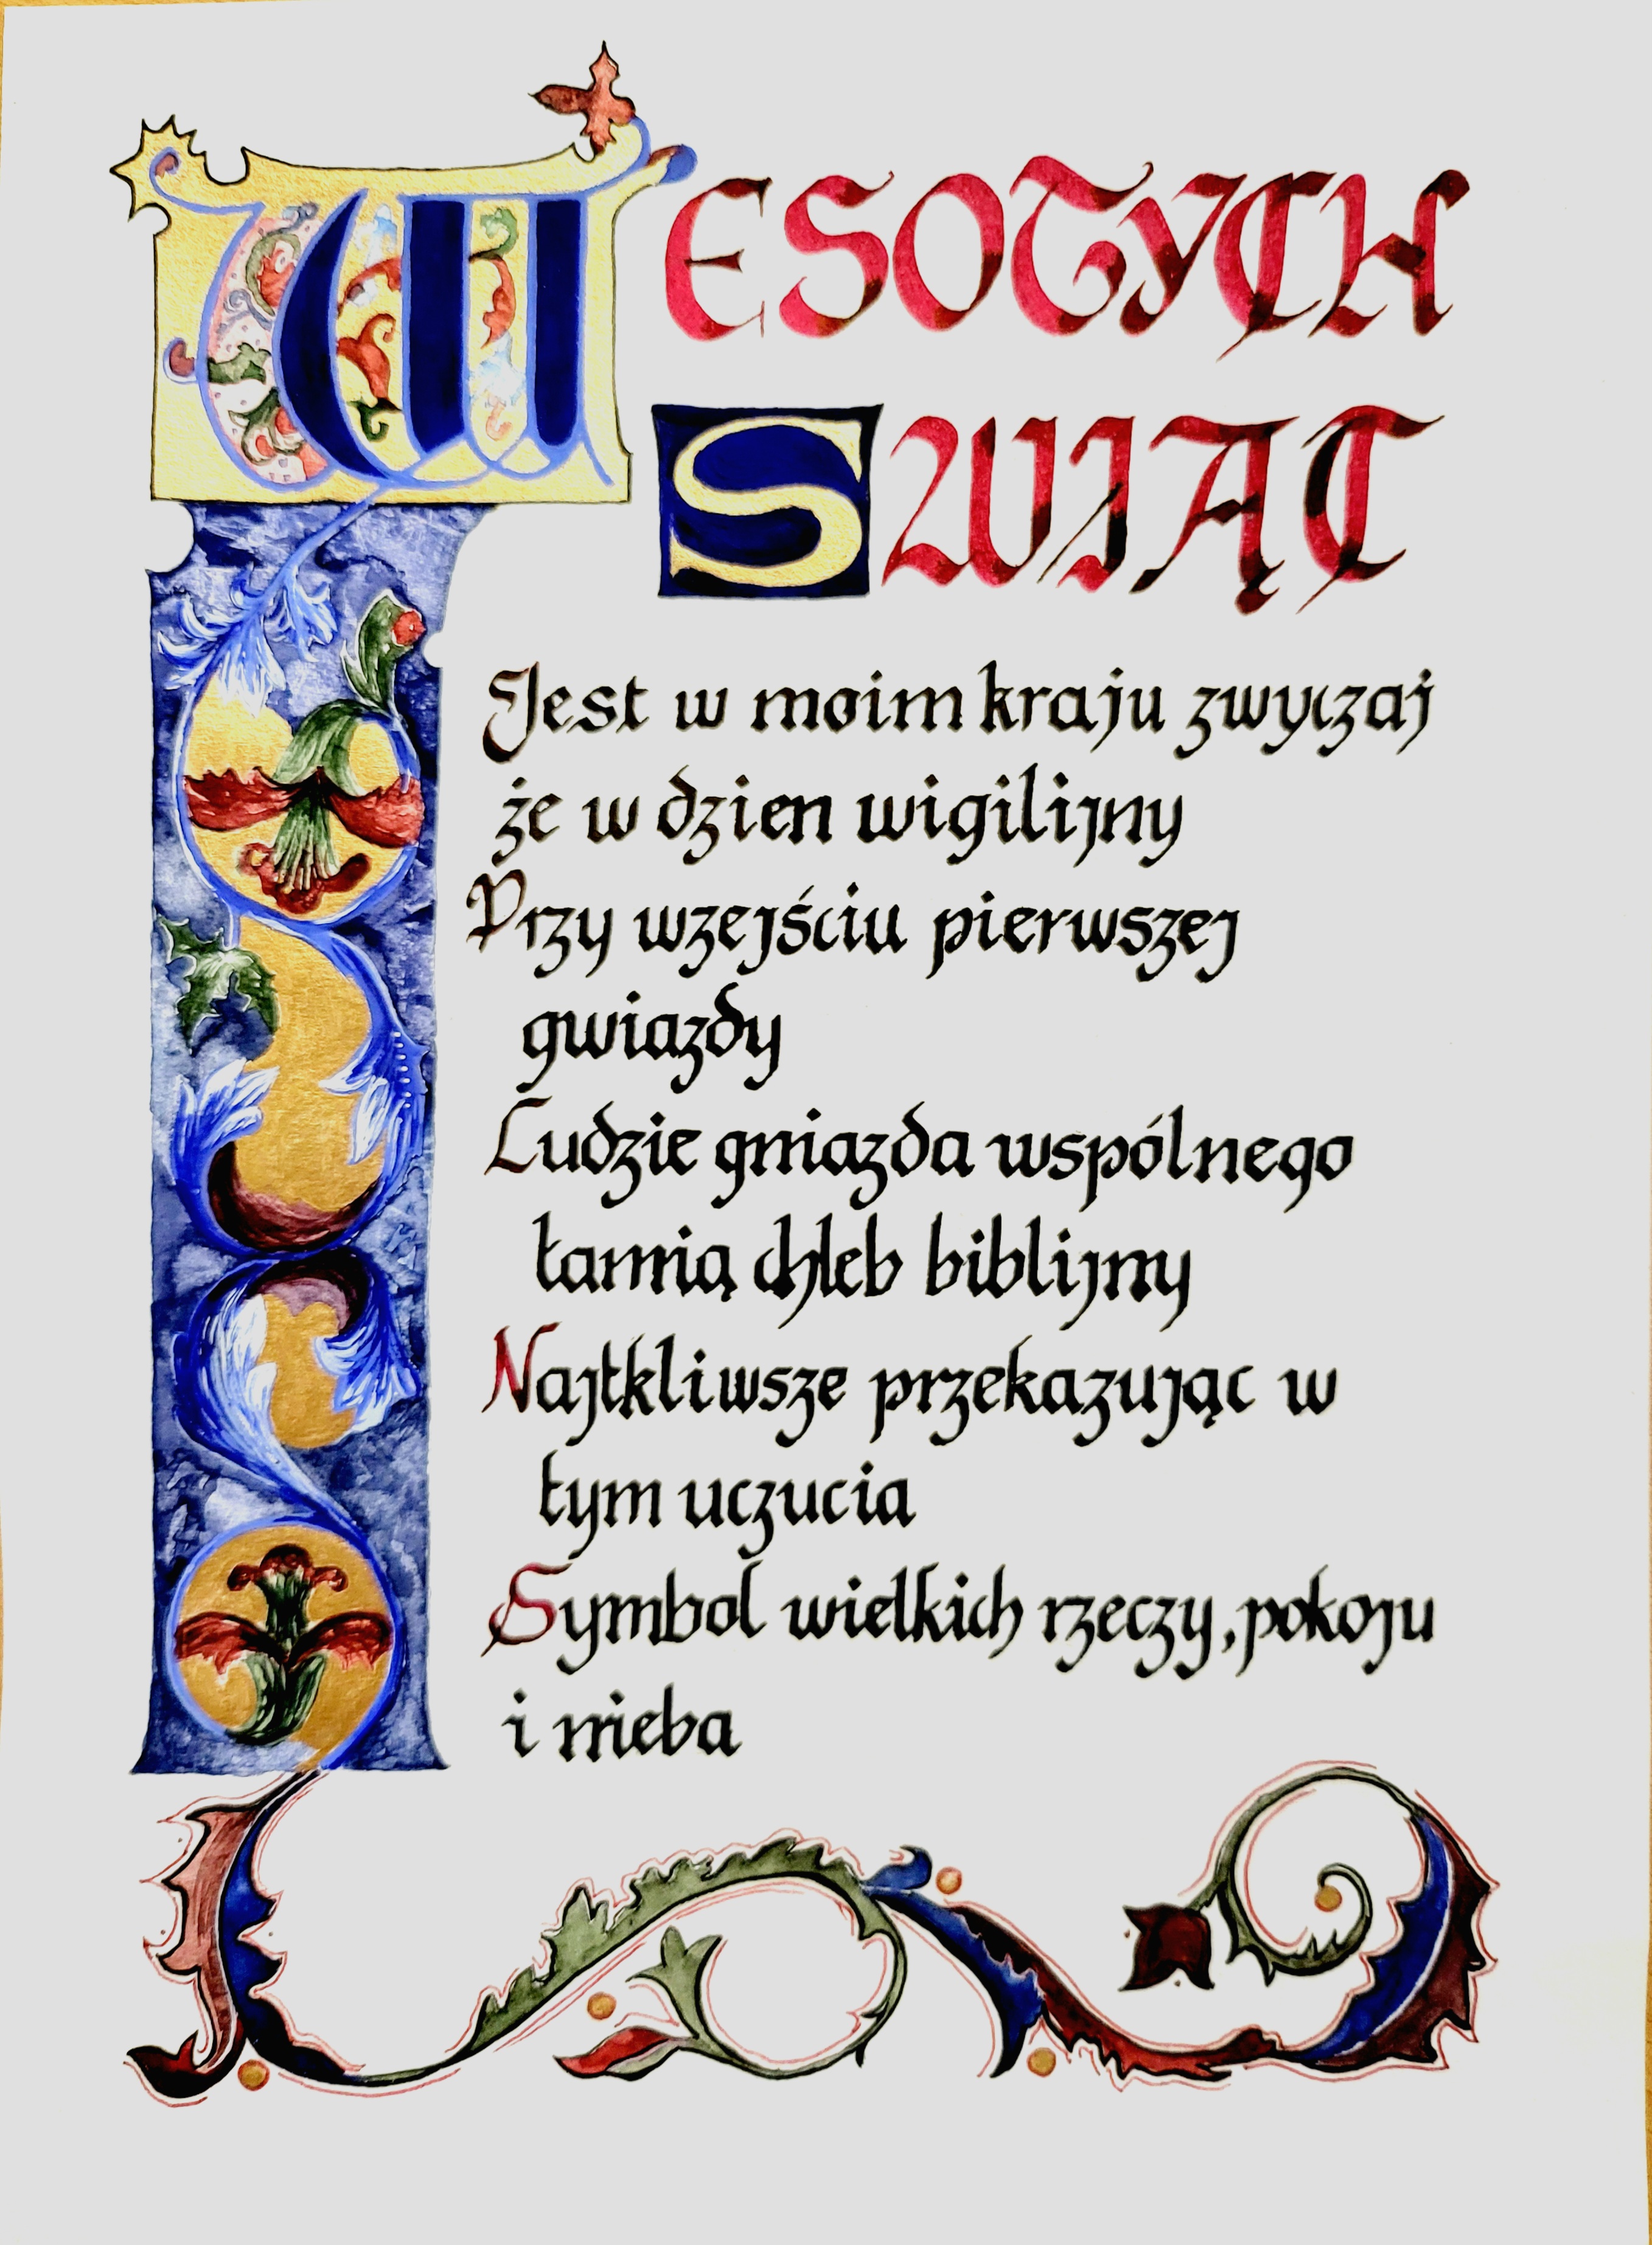 WESOŁYCH
ŚWIĄT
Jest w moim kraju zwyczaj
że w dzien wigilijny
Przy wzejściu pierwszej
gwiazdy
Ludzie gniazda wspólnego
łamią chleb biblijny
Najtkliwsze przekazując w
tym uczucia
Symbol wielkich rzeczy, pokoju
i nieba